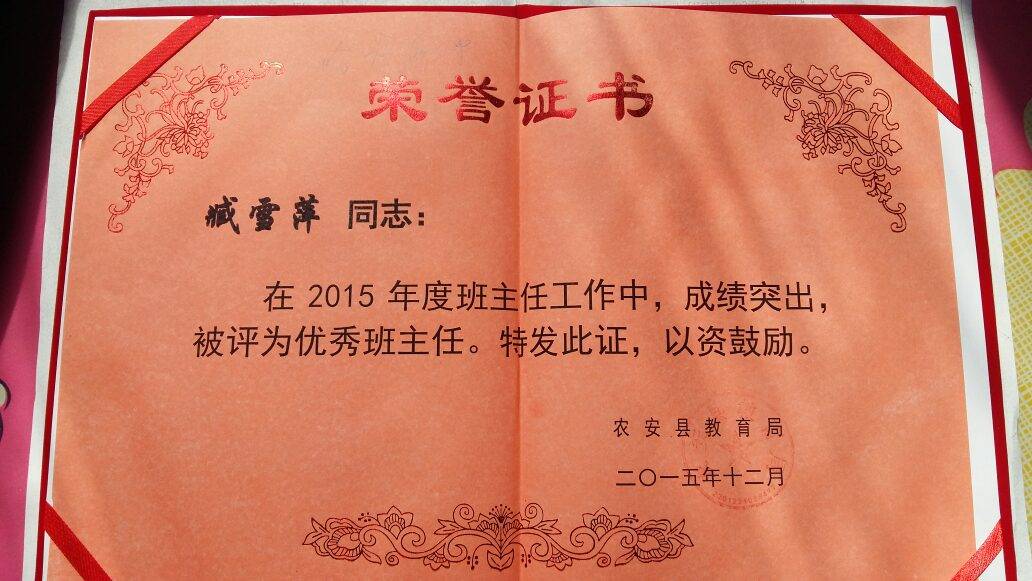 荣誉证书
臧雪萍 同志：
在 2015 年度班主任工作中，成绩突出，
被评为优秀班主任。特发此证，以资鼓励。
农安县教育局
二〇一五年十二月